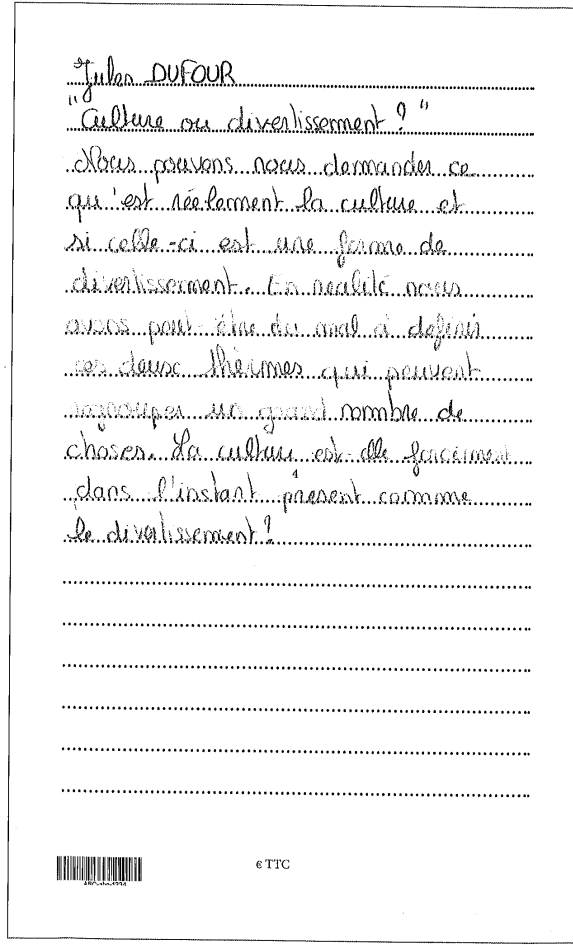 Jules DUFOUR
"Culture ou divertissement ? "
Nous pouvons nous demander ce
qu'est réelement la culture et
si celle-ci est une forme de
divertissement. En réalité nous
avons peut-être du mal à définir
ces deux thèrmes qui peuvent
regrouper un grand nombre de
choses. La culture est-elle forcément
dans l'instant présent comme
le divertissement ?
€ TTC